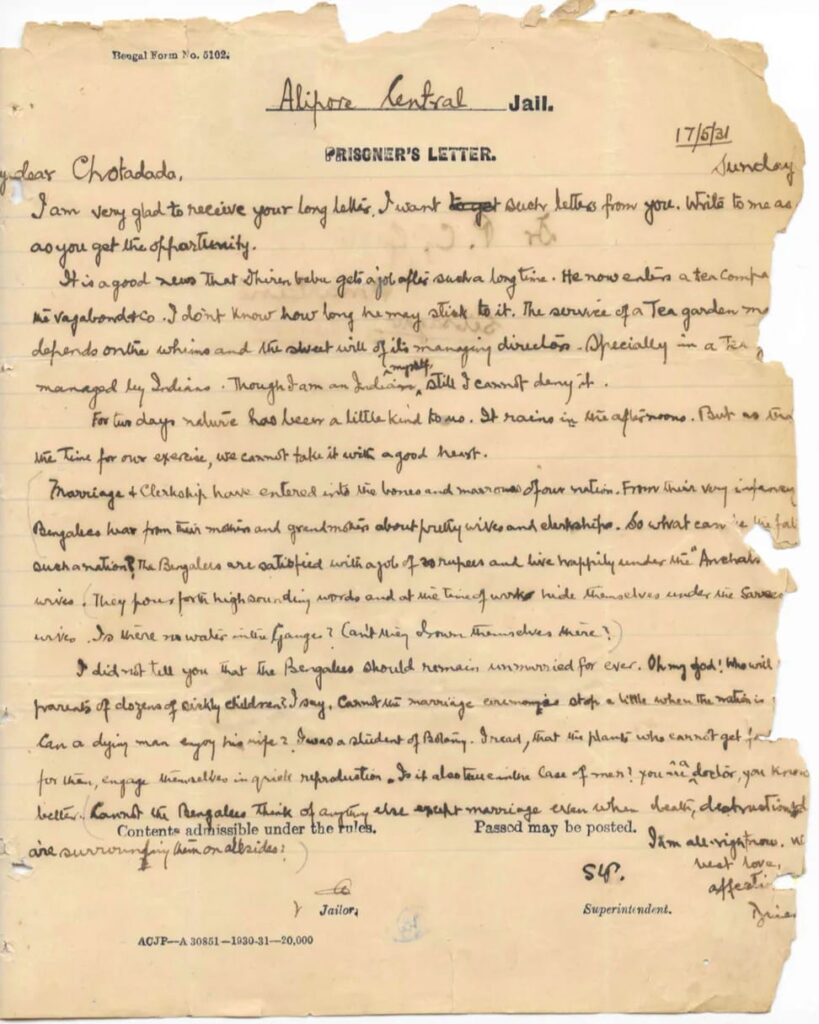 Bengal Form No. 5102.
Alipore Central Jail.
17/5/31
PRISONER'S LETTER.
Sunday
dear Chotadada,
I am very glad to receive your long letter. I want to get such letters from you. Write to me as
as you get the opportunity.
It is a good news that Dhiren babu gets a job after such a long time. He now enters a tea Compa
the vagabond & Co. I don't know how long he may stick to it. The service of a Tea garden mo
depends on the whims and the sweet will of its managing directors. Specially in a Tea
managed by Indians. Though I am an Indian myself, still I cannot deny it.
For two days nature has been a little kind to us. It rains in the afternoons. But as tha
the time for our exercise, we cannot take it with a good heart.
Marriage & Clerkship have entered into the bones and marrows of our nation. From their very infancy
Bengalees hear from their mothers and grandmothers about pretty wives and clerkships. So what can be the fat
such a nation? The Bengalees are satisfied with a job of 30 rupees and live happily under the "Anchals
wives. (They pour forth high sounding words and at the time of works hide themselves under the Sarees
wives. Is there no water in the Ganges? Can't they drown themselves there?)
I did not tell you that the Bengalees should remain unmarried for ever. Oh my God! Who will
parents of dozens of sickly children? I say. Cannot the marriage ceremonies stop a little when the nation is
Can a dying man enjoy his wife? I was a student of Botany. I read, that the plants who cannot get
for them, engage themselves in quick reproduction. Is it also true in the case of men? You are a doctor, you know
better. (Cannot the Bengalees think of anything else except marriage even when death, destruction
Contents admissible under the rules. Passed may be posted.
are surrounding them on all sides?)
I am all-right now. W
best love,
affecti
Jailor.
Superintendent.
ACJP—A 30851—1930-31—20,000